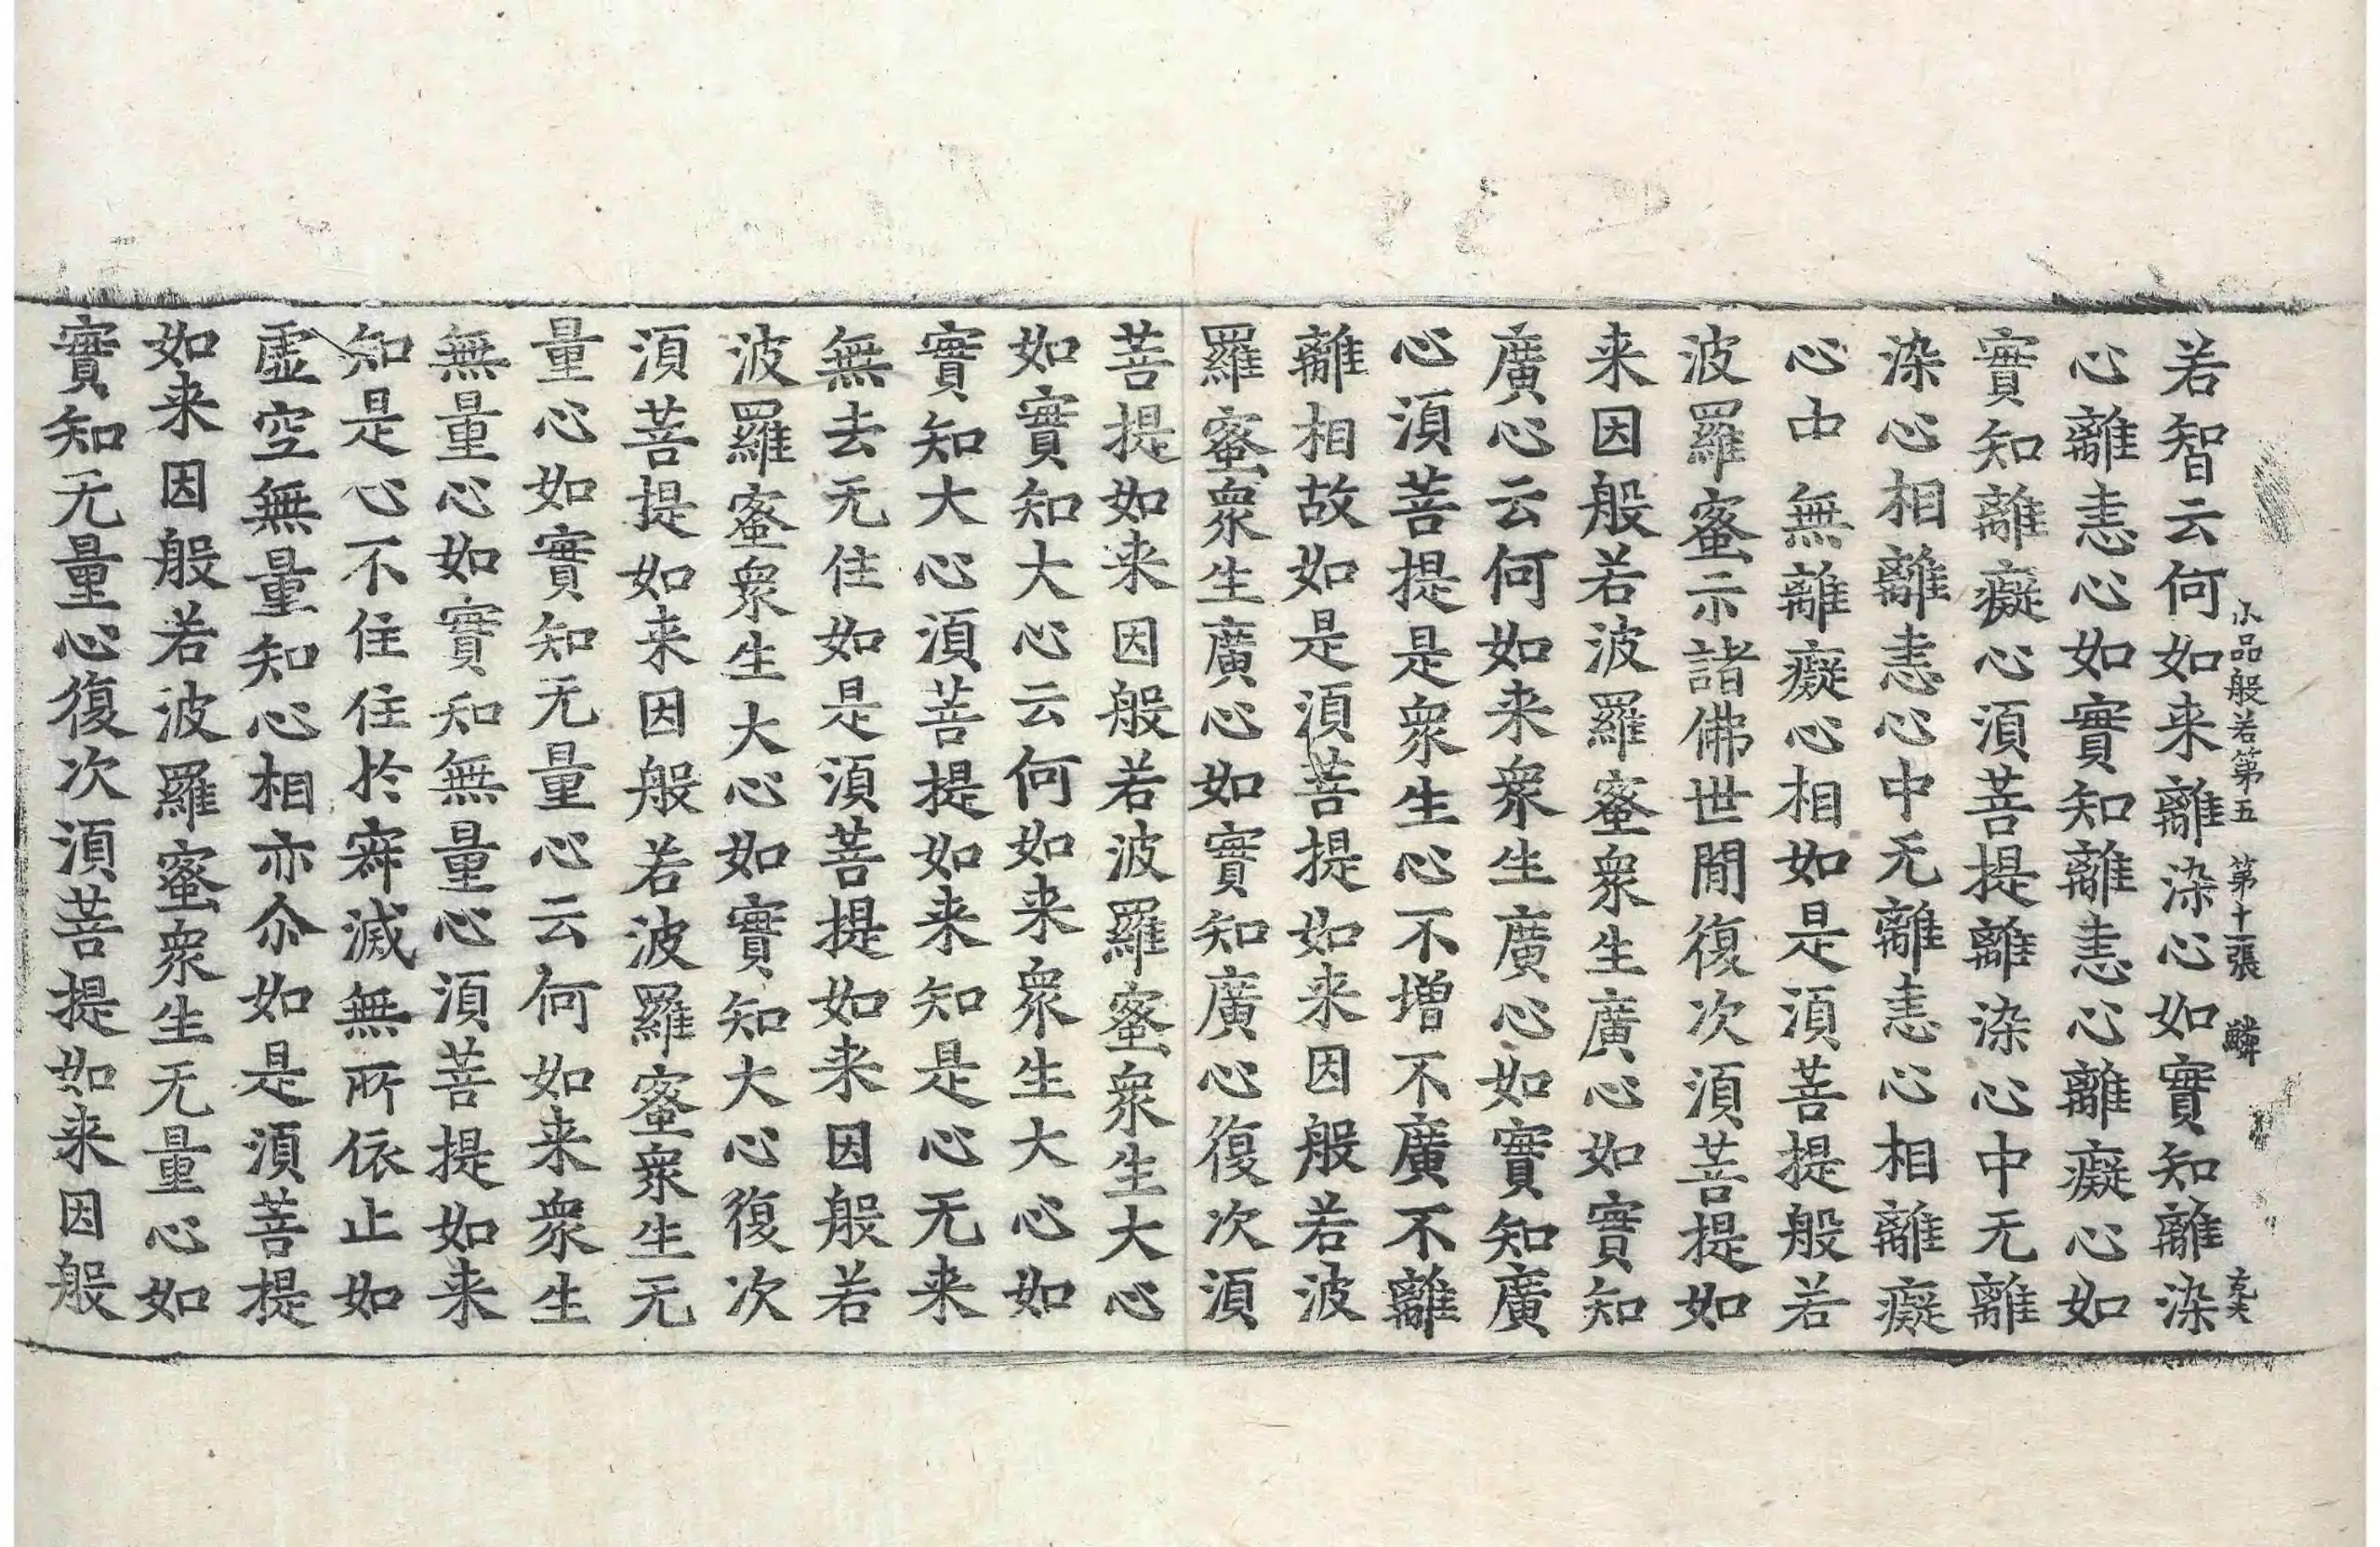 小品般若第五　第十一張　鱗　玄夫
若智云何如来離染心如實知離染
心離恚心如實知離恚心離癡心如
實知離癡心湏菩提離染心中无離
染心相離恚心中无離恚心相離癡
心中無離癡心相如是湏菩提般若
波羅蜜示諸佛世間復次湏菩提如
来因般若波羅蜜衆生廣心如實知
廣心云何如来衆生廣心如實知廣
心湏菩提是衆生心不增不廣不離
離相故如是湏菩提如来因般若波
羅蜜衆生廣心如實知廣心復次湏
菩提如来因般若波羅蜜衆生大心
如實知大心云何如来衆生大心如
實知大心湏菩提如来知是心无来
無去无住如是湏菩提如来因般若
波羅蜜衆生大心如實知大心復次
湏菩提如来因般若波羅蜜衆生无
量心如實知无量心云何如来衆生
無量心如實知無量心湏菩提如来
知是心不住住於㝥滅無所依止如
虛空無量知心相亦尒如是湏菩提
如来因般若波羅蜜衆生无量心如
實知无量心復次湏菩提如来因般